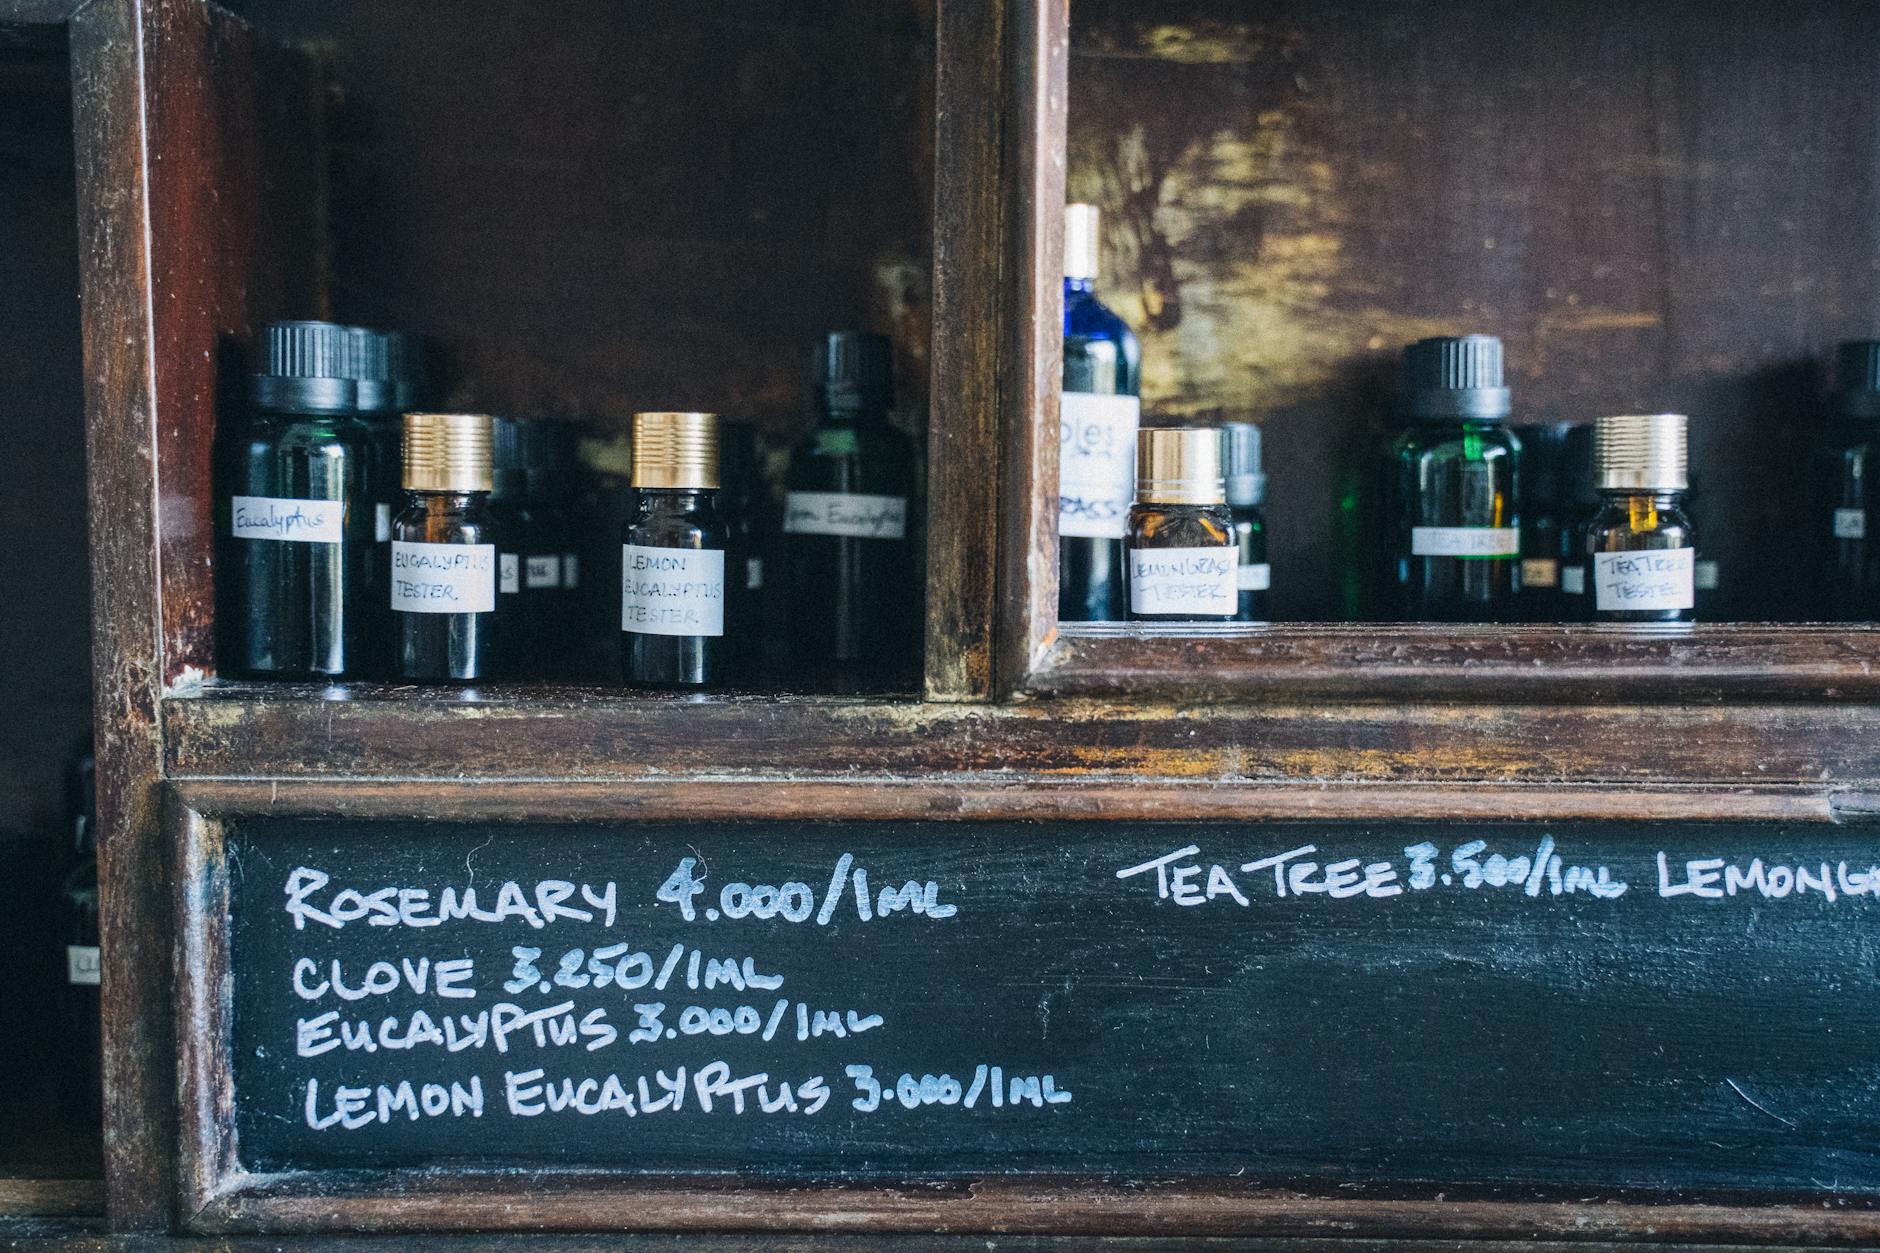 Eucalyptus
EUCALYPTUS
TESTER
LEMON
EUCALYPTUS
TESTER
Eucalyptus
LEMONGRASS
TESTER
TEA TREE
TEA TREE
TESTER
ROSEMARY 4.000/1ML
CLOVE 3.250/1ML
EUCALYPTUS 3.000/1ML
LEMON EUCALYPTUS 3.000/1ML
TEA TREE 3.500/1ML LEMONG